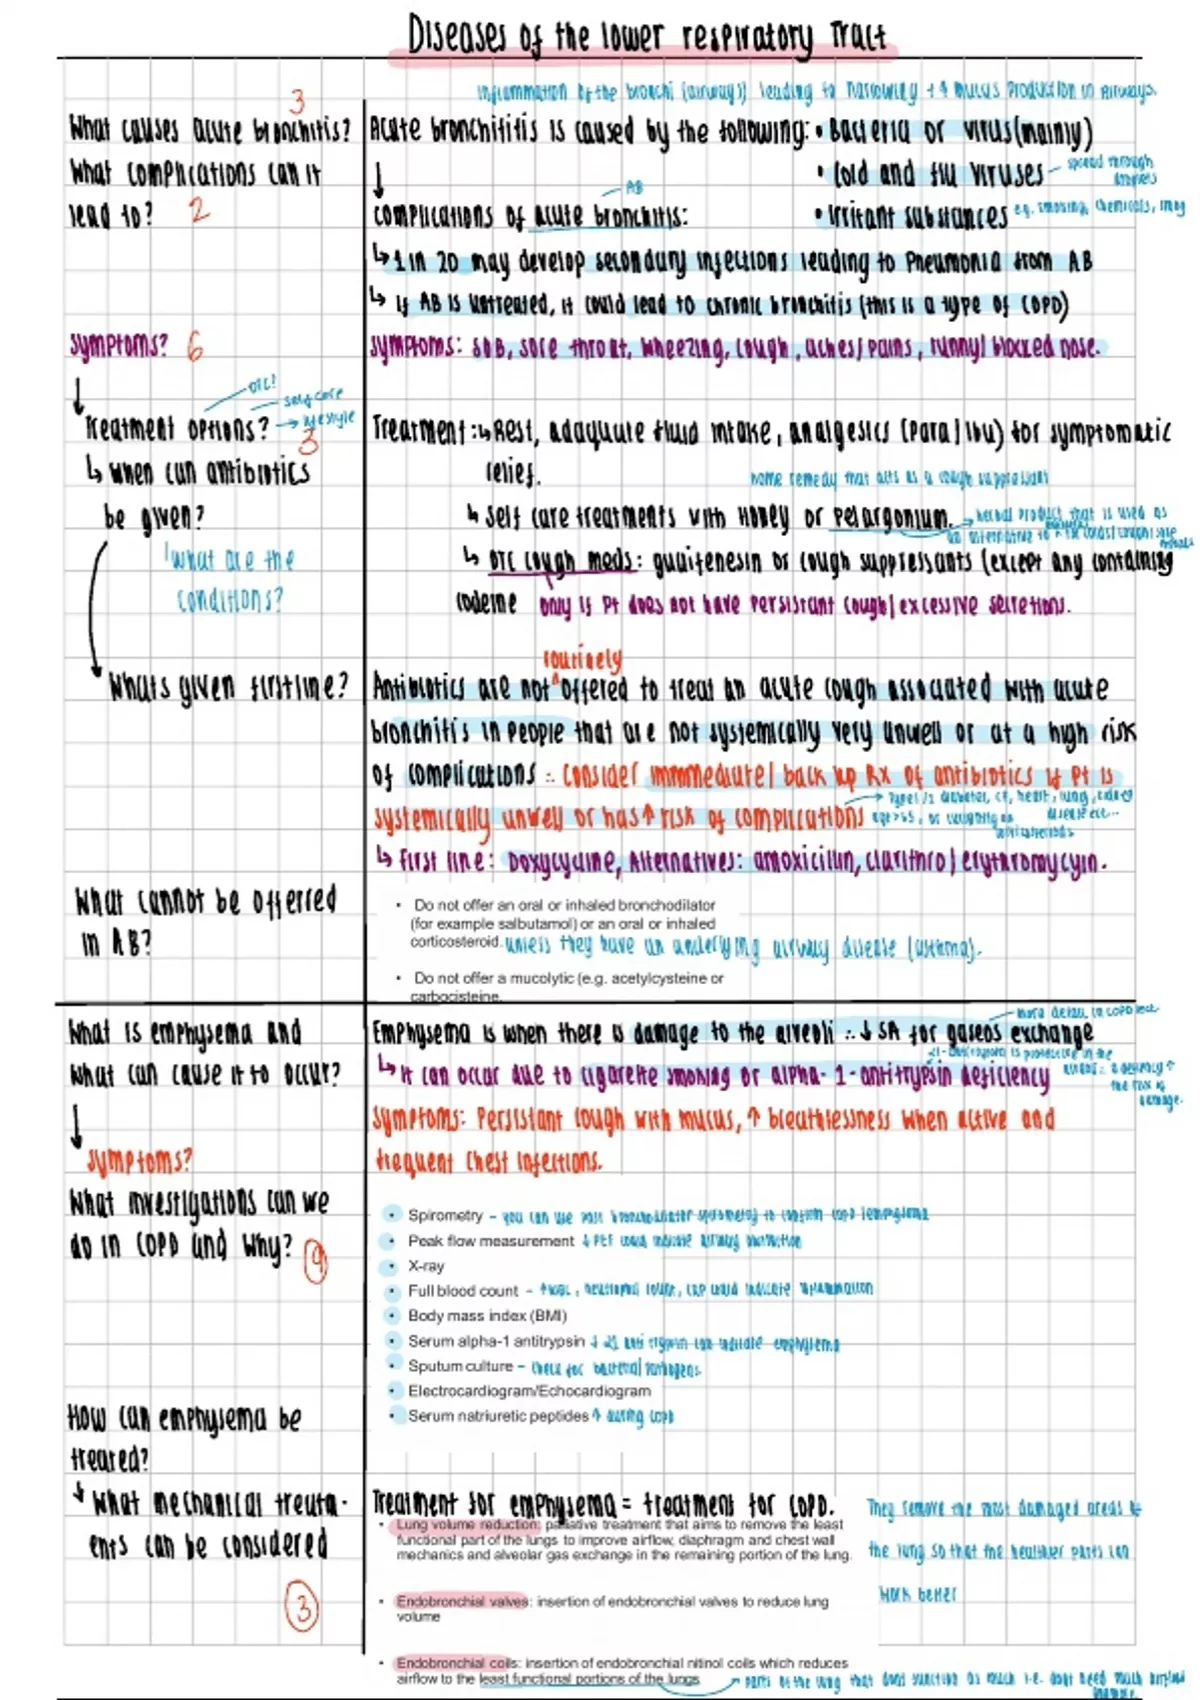 Diseases of the lower respiratory Tract
inflammation of the bronchi (airways) leading to narrowing + ↑ mucus production in airways.
3
What causes acute bronchitis?
What complications can it
lead to? 2
Acute bronchititis is caused by the following: • Bacteria or virus (mainly)
• Cold and flu viruses - spread through droplets
• Irritant substances e.g. smoking, chemicals, smog
AB
↓
Complications of acute bronchitis:
↳ 1 in 20 may develop secondary infections leading to Pneumonia from AB
↳ If AB is untreated, it could lead to chronic bronchitis (this is a type of COPD)
Symptoms? 6
Symptoms: SOB, sore throat, wheezing, cough, aches/pains, runny/blocked nose.
OTC?
self care
→ lifestyle
Treatment options?
3
↳ When can antibiotics
be given?
what are the
conditions?
Treatment: ↳ Rest, adayuate fluid intake, analgesics (para/ibu) for symptomatic
relief.
home remedy that acts as a cough suppressant
↳ Self care treatments with Honey or Pelargonium. → herbal product that is used as
an alternative to
↳ OTC cough meds: guaifenesin or cough suppressants (except any containing
codeine only if Pt does not have persistant cough/excessive secretions.
Whats given firstline?
routinely
Antibiotics are not offered to treat an acute cough associated with acute
bronchitis in people that are not systemically very unwell or at a high risk
of complications ∴ Consider immmediate/back up Rx of antibiotics if Pt is
systemically unwell or has ↑ risk of complications → Type 1/2 diabetes, CF, heart, lung, kidney
disease etc...
age >65, or
↳ First line: Doxycycline, Alternatives: amoxicillin, clarithro/erythromycin.
What cannot be offerred
in AB?
• Do not offer an oral or inhaled bronchodilator
(for example salbutamol) or an oral or inhaled
corticosteroid. unless they have an underlying airway disease (asthma).
• Do not offer a mucolytic (e.g. acetylcysteine or
carbocisteine.
What is emphysema and
what can cause it to occur?
↓
symptoms?
more detail in COPD lect
Emphysema is when there is damage to the alveoli ∴ ↓ SA for gaseos exchange
↳ It can occur due to cigarette smoking or alpha-1-antitrypsin deficiency
is protective in the
∴ a deficiency ↑
the risk of
damage.
Symptoms: Persistant cough with mucus, ↑ breathlessness when active and
frequent chest infections.
What investigations can we
do in COPD and why? 9
• Spirometry - you can use post bronchodilator spirometry to confirm COPD/emphysema
• Peak flow measurement ↓ PEF could indicate airway obstruction
• X-ray
• Full blood count - ↑ WBC, neutrophil count, CRP could indicate inflammation
• Body mass index (BMI)
• Serum alpha-1 antitrypsin ↓ α1 anti trypsin can indicate emphysema
• Sputum culture - check for bacterial pathogens
• Electrocardiogram/Echocardiogram
• Serum natriuretic peptides ↑ during COPD
How can emphysema be
treated?
↳ What mechanical treata-
ents can be considered
3
Treatment for emphysema = treatment for COPD.
• Lung volume reduction: palliative treatment that aims to remove the least
functional part of the lungs to improve airflow, diaphragm and chest wall
mechanics and alveolar gas exchange in the remaining portion of the lung.
They remove the most damaged areas of
the lung so that the healthier parts can
work better
• Endobronchial valves: insertion of endobronchial valves to reduce lung
volume
• Endobronchial coils: insertion of endobronchial nitinol coils which reduces
airflow to the least functional portions of the lungs
parts of the lung that dont function as much i.e. dont need much airflow